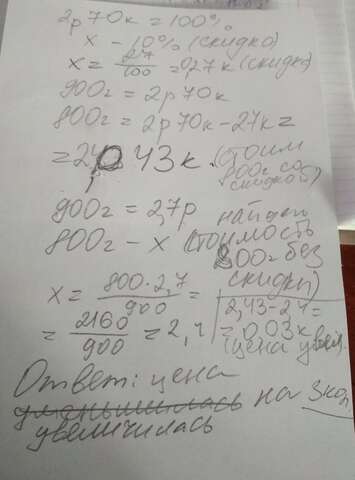 2р 70к = 100%
х - 10% (скидка)
х = 27/100 = 0,27к (скидка)
900г = 2р70к
800г = 2р70к - 27к =
= 2р 43к. (стоим
800г со
скидкой)
900г = 2,7р
800г - х
найдем
стоимость
800г без
скидки)
х = 800·2,7/900 =
= 2160/900 = 2,4
2,43 - 2,4 =
= 0,03к
(цена увел.
Ответ: цена
уменьшилась на 3коп
увеличилась